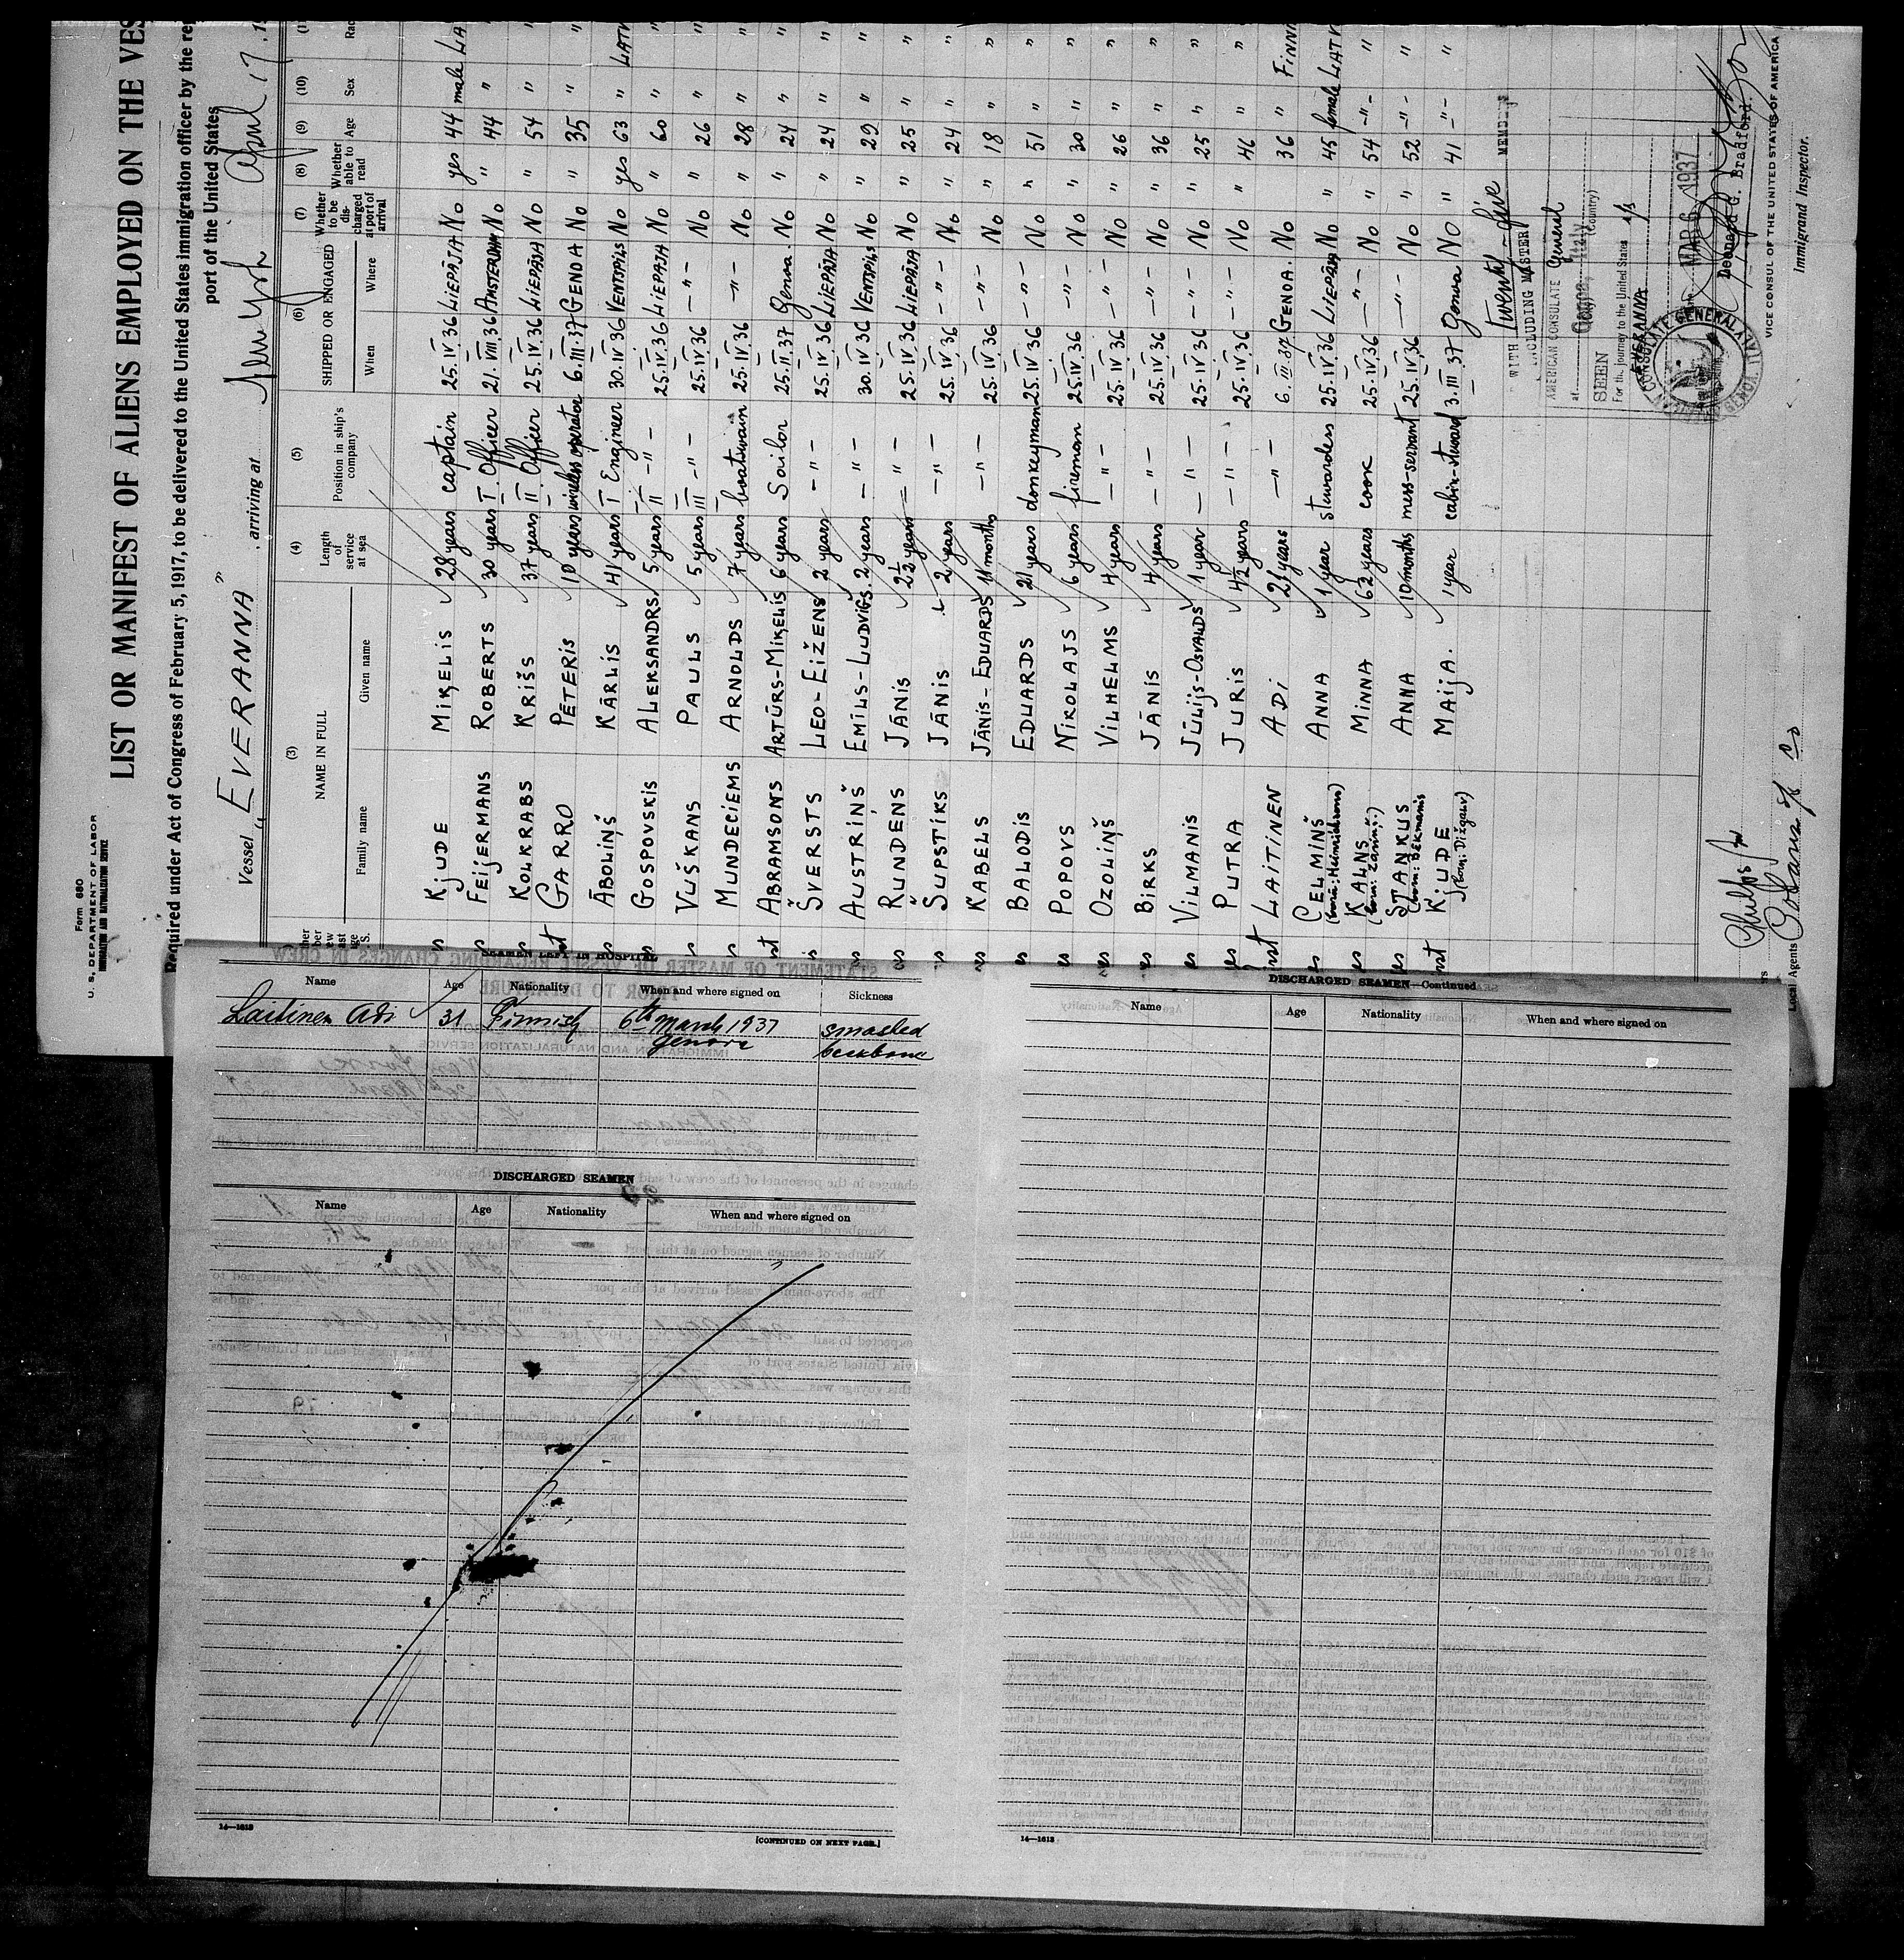 Form 680
U. S. DEPARTMENT OF LABOR
IMMIGRATION AND NATURALIZATION SERVICE
LIST OR MANIFEST OF ALIENS EMPLOYED ON THE VES
Required under Act of Congress of February 5, 1917, to be delivered to the United States immigration officer by the re
port of the United States
Vessel „EVERANNA” , arriving at New York April 17, 19
(3) (4) (5) (6) (7) (8) (9) (10)
NAME IN FULL Length of service at sea Position in ship's company SHIPPED OR ENGAGED Whether to be discharged at port of arrival Whether able to read Age Sex Rac
Family name Given name When Where
KjUDE MIĶELIS 28 years captain 25.IV.36 LIEPĀJA No yes 44 male LA
FEIJERMANS ROBERTS 30 years I. Officer 21.VIII.36 AMSTERDAM No " 44 "
KOLKRABS KRIŠS 37 years II. Officer 25.IV.36 LIEPĀJA No " 54 " "
GARRO PĒTERIS 10 years wireless operator 6.III.37 GENOA No " 35 " "
ĀBOLIŅŠ KĀRLIS 41 years I Engineer 30.IV 36 VENTSPILS No yes 63 " LATV
GOSPOVSKIS ALEKSANDRS 5 years II -"- 25.IV.36 LIEPĀJA No " 60 " "
VUŠKANS PAULS 5 years III -"- 25.IV 36 -"- No " 26 " "
MUNDECIEMS ARNOLDS 7 years boatswain 25.IV 36 -"- No " 28 " "
ABRAMSONS ARTŪRS-MIĶELIS 6 years Sailor 25.II.37 Genoa. No " 24 " "
ŠVERSTS LEO-EIŽENS 2 years -"- 25.IV 36 LIEPĀJA No " 24 " "
AUSTRIŅŠ EMĪLS-LUDVIGS. 2 years -"- 30.IV 36 VENTSPILS No " 29 " "
RUNDENS JĀNIS 2½ years -"- 25.IV 36 LIEPĀJA No " 25 " "
ŠUPSTIKS JĀNIS 2 years -"- 25.IV 36 -"- No " 24 " "
KABELS JĀNIS-EDUARDS 11 months -"- 25.IV 36 -"- No " 18 " "
BALODIS EDUARDS 21 years donkeyman 25.IV 36 -"- No " 51 " "
POPOVS NIKOLAJS 6 years fireman 25.IV.36 -"- No " 30 " "
OZOLIŅŠ VILHELMS 4 years -"- 25.IV 36 -"- No " 26 " "
BIRKS JĀNIS 4 years -"- 25.IV 36 -"- No " 36 " "
VILMANIS JŪLIJS-OSVALDS 1 year -"- 25.IV 36 -"- No " 25 " "
PUTRA JURIS 42 years -"- 25.IV.36 -"- No " 46 " "
LAITINEN ADI 21 years -"- 6.III.37 GENOA. No 36 " FINNI
CELMIŅŠ ANNA 1 year stewardess 25.IV 36 LIEPĀJA No " 45 female LATV
KALNS MINNA 62 years cook 25.IV 36 -"- No " 54 -"- "
(born: Zāmiņš.)
STANKUS ANNA 10 months mess-servant 25.IV.36 -"- No " 52 -"- "
(born: BEKMANIS
KjUDE MAIJA. 1 year cabin-steward 3.III 37 Genoa No " 41 -"- "
(born: Dižgalv)
WITH twenty-five MEMBERS
INCLUDING MASTER
AMERICAN CONSULATE General
at Genoa, Italy
(Country)
SEEN
For the journey to the United States s/s
EVERANNA
MAR 6 1937
Leonard G. Bradford.
VICE CONSUL OF THE UNITED STATES OF AMERICA
Immigrand Inspector.
Local Agents
SEAMEN LEFT IN HOSPITAL
Name Age Nationality When and where signed on Sickness
Laitinen Adi 31 Finnish 6th March 1937 smashed
Genova backbone
DISCHARGED SEAMEN
Name Age Nationality When and where signed on
14—1613
[CONTINUED ON NEXT PAGE.]
DISCHARGED SEAMEN—Continued
Name Age Nationality When and where signed on
14—1613